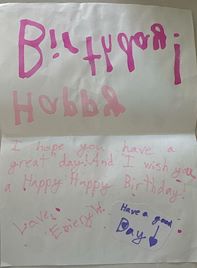 Birthday!
Happy
I hope you have a
great day! And I wish you
a Happy Happy Birthday!
Love,
Emery
Have a good
Day